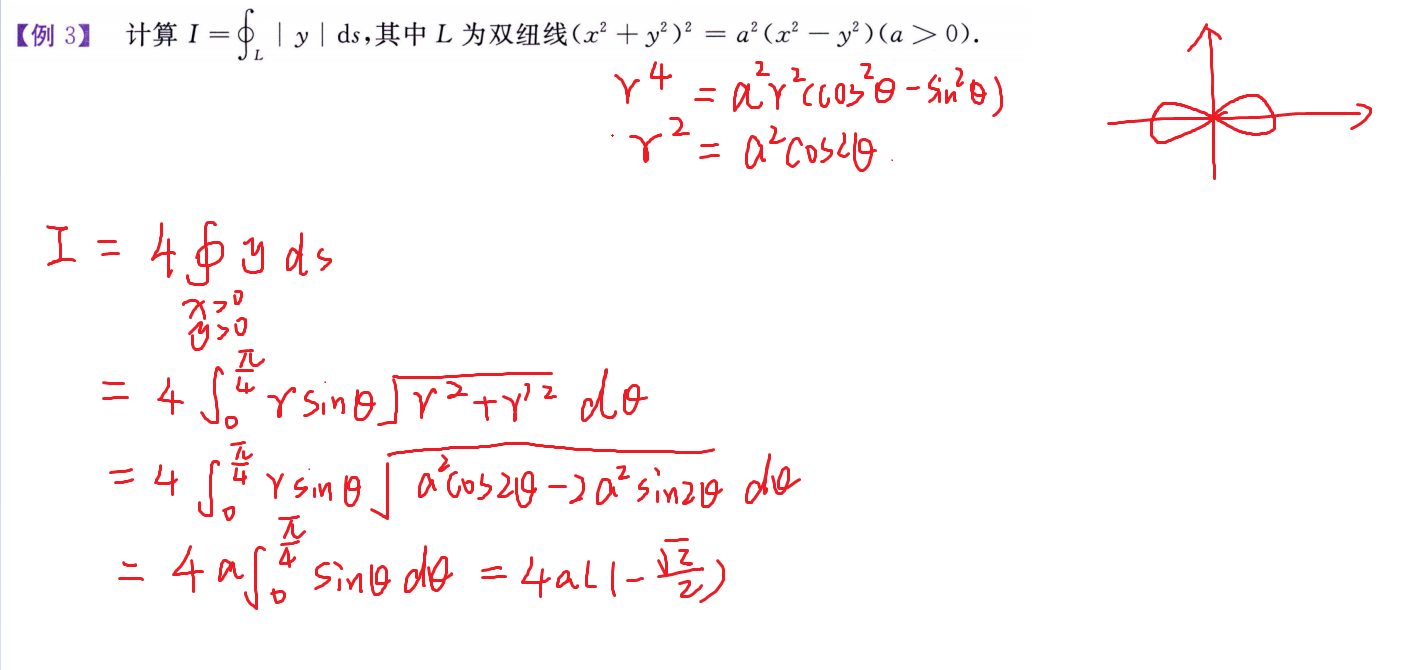 【例 3】 计算 I = ∮_L | y | ds,其中 L 为双纽线(x² + y²)² = a²(x² − y²)(a > 0).
r⁴ = a²r²(cos²θ - sin²θ)
r² = a²cos2θ.
I = 4 ∮ y ds
x>0
y>0
= 4 ∫₀^{π/4} r sinθ √(r² + r'²) dθ
= 4 ∫₀^{π/4} r sinθ √(a²cos2θ - 2a²sin2θ) dθ
= 4a ∫₀^{π/4} sinθ dθ = 4a(1 - √2/2)